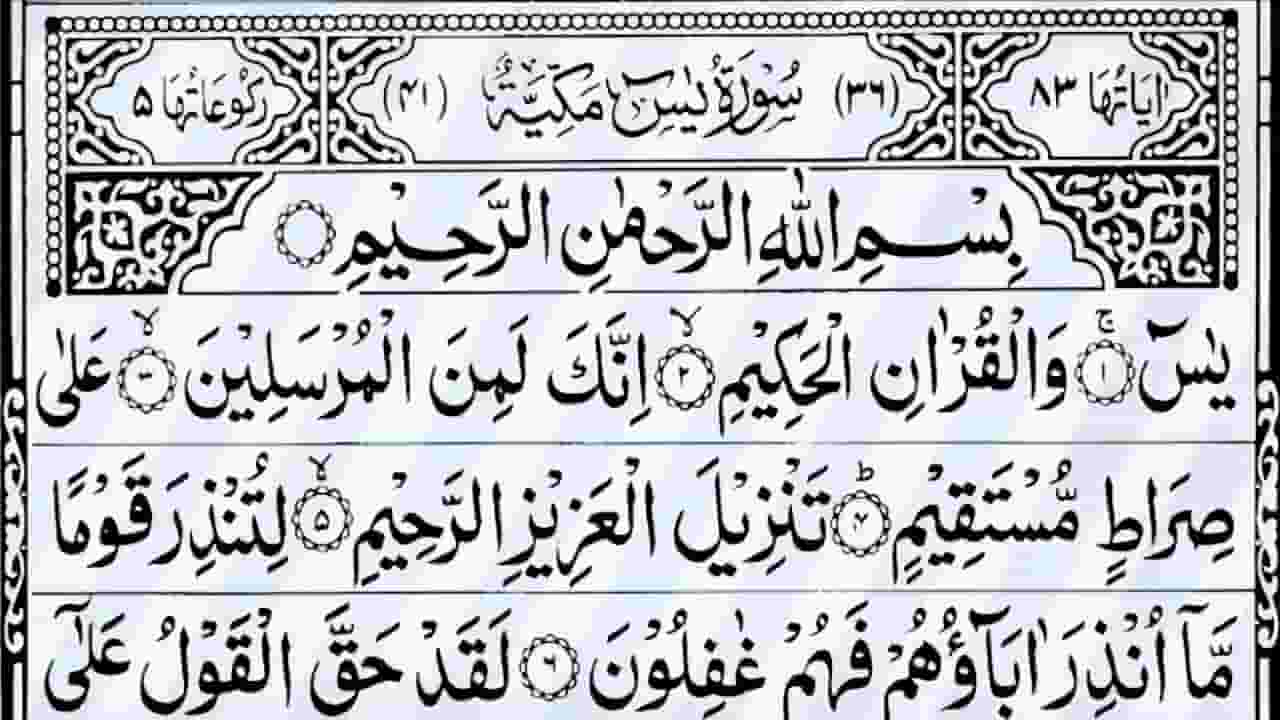 اٰیَاتُهَا ٨٣ (٣٦) سُوْرَةُ یٰسٓ مَكِّيَّةٌ (٤١) رُكُوْعَاتُهَا ٥
بِسْمِ اللّٰهِ الرَّحْمٰنِ الرَّحِيْمِ
يٰسٓ ۚ﴿١﴾ وَالْقُرْاٰنِ الْحَكِيْمِ ۙ﴿٢﴾ اِنَّكَ لَمِنَ الْمُرْسَلِيْنَ ۙ﴿٣﴾ عَلٰى
صِرَاطٍ مُّسْتَقِيْمٍ ؕ﴿٤﴾ تَنْزِيْلَ الْعَزِيْزِ الرَّحِيْمِ ۙ﴿٥﴾ لِتُنْذِرَ قَوْمًا
مَّآ اُنْذِرَ اٰبَآؤُهُمْ فَهُمْ غٰفِلُوْنَ ﴿٦﴾ لَقَدْ حَقَّ الْقَوْلُ عَلٰٓى